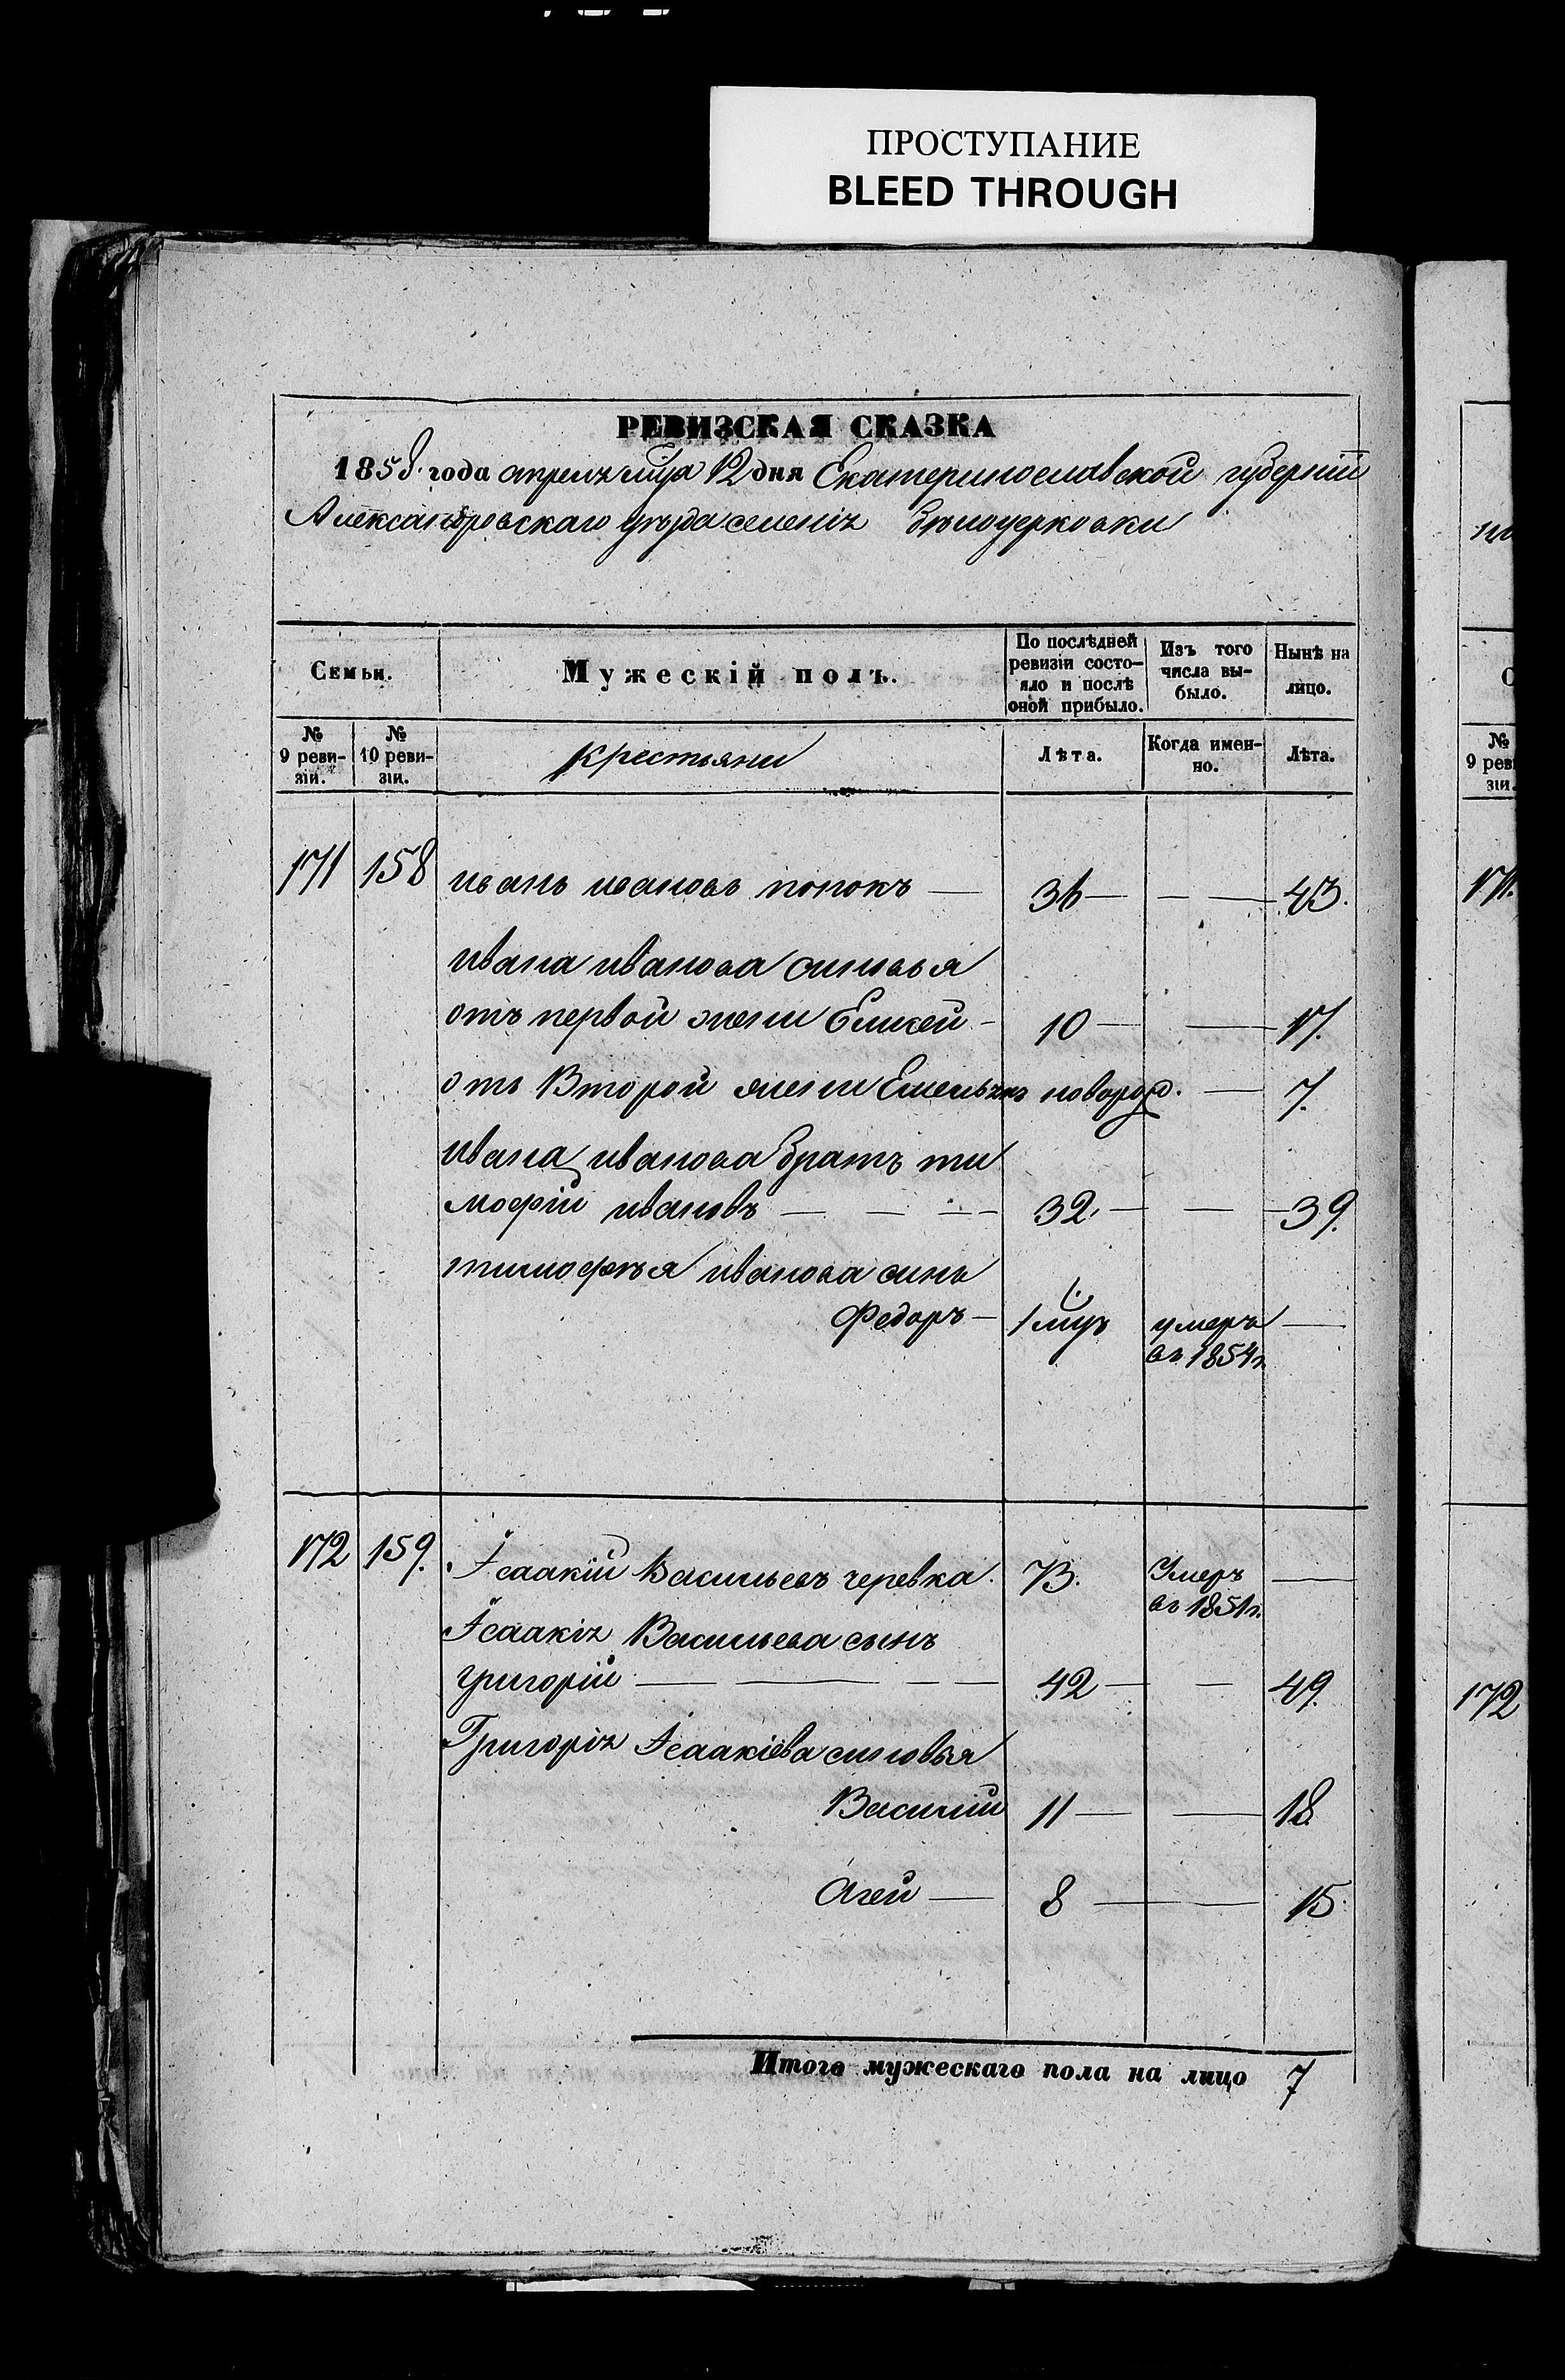 ПРОСТУПАНИЕ
BLEED THROUGH
РЕВИЗСКАЯ СКАЗКА
1858 года апреля мца 12 дня Екатеринославской губернiи
Александровскаго уѣзда селенiя бѣлоцерковки
Семьи. Мужескiй полъ. По послѣдней ревизiи состо- яло и послѣ оной прибыло. Изъ того числа вы- было. Нынѣ на лицо.
№ 9 реви- зiи. № 10 реви- зiи. крестьяни Лѣта. Когда имен- но. Лѣта.
171 158 иванъ ивановъ попокъ 36 43.
ивана иванова синовья
отъ первой жени Еликей 10 17.
отъ Второй жени Емельянъ новород. 7.
ивана иванова братъ ти
мофiй ивановъ 32 39.
тимофѣя иванова синъ
Федоръ 1 мцъ умеръ
въ 1854 г.
172 159. Iсаакiй Васильевъ черевка. 73. Умеръ
въ 1851 г.
Iсаакiя Васильева сынъ
григорiй 42 49.
Григорiя Iсаакiева синовья
Василий 11 18.
Агей 8 15.
Итого мужескаго пола на лицо 7
№
9 рев
зiи.
171.
172